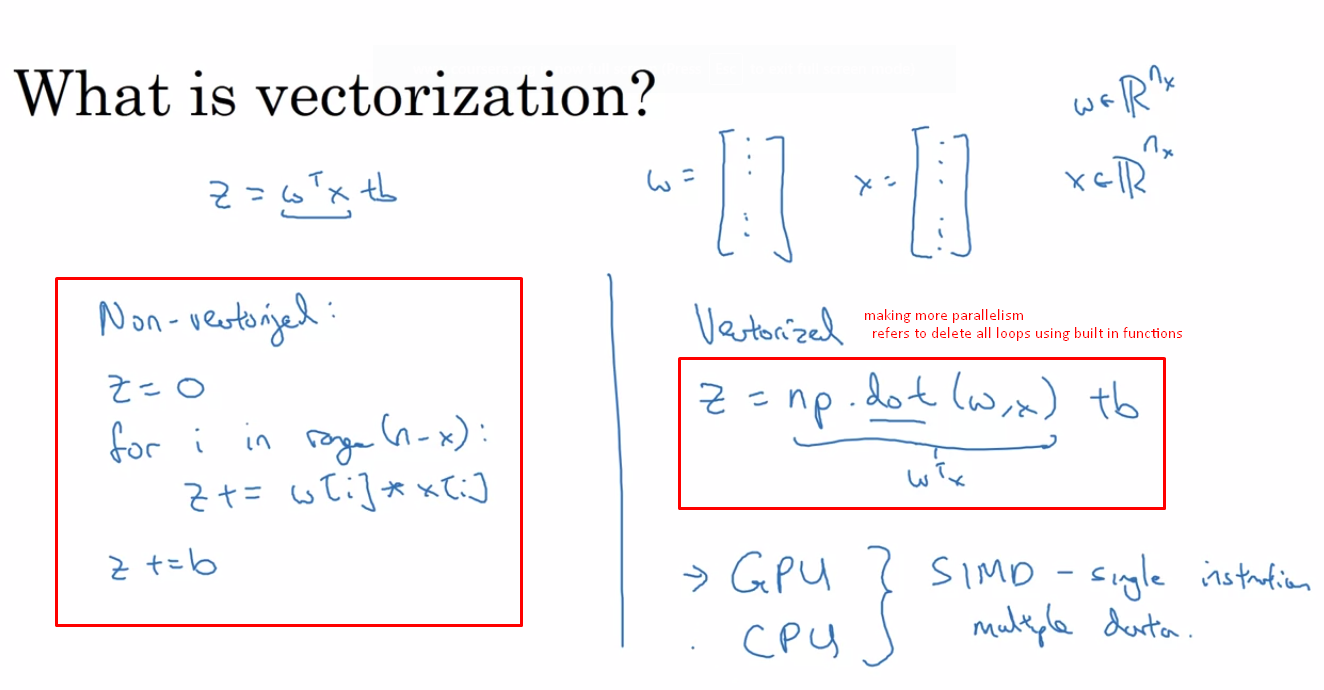 What is vectorization?
z = wᵀx + b
w = [⋮ ⋮]
x = [⋮ ⋮]
w ∈ ℝⁿˣ
x ∈ ℝⁿˣ
Non-vectorized:
z = 0
for i in range(n-x):
z += w[i] * x[i]
z += b
Vectorized
making more parallelism
refers to delete all loops using built in functions
z = np.dot(w,x) + b
wᵀx
→ GPU
. CPU
} SIMD - single instruction
multiple data.